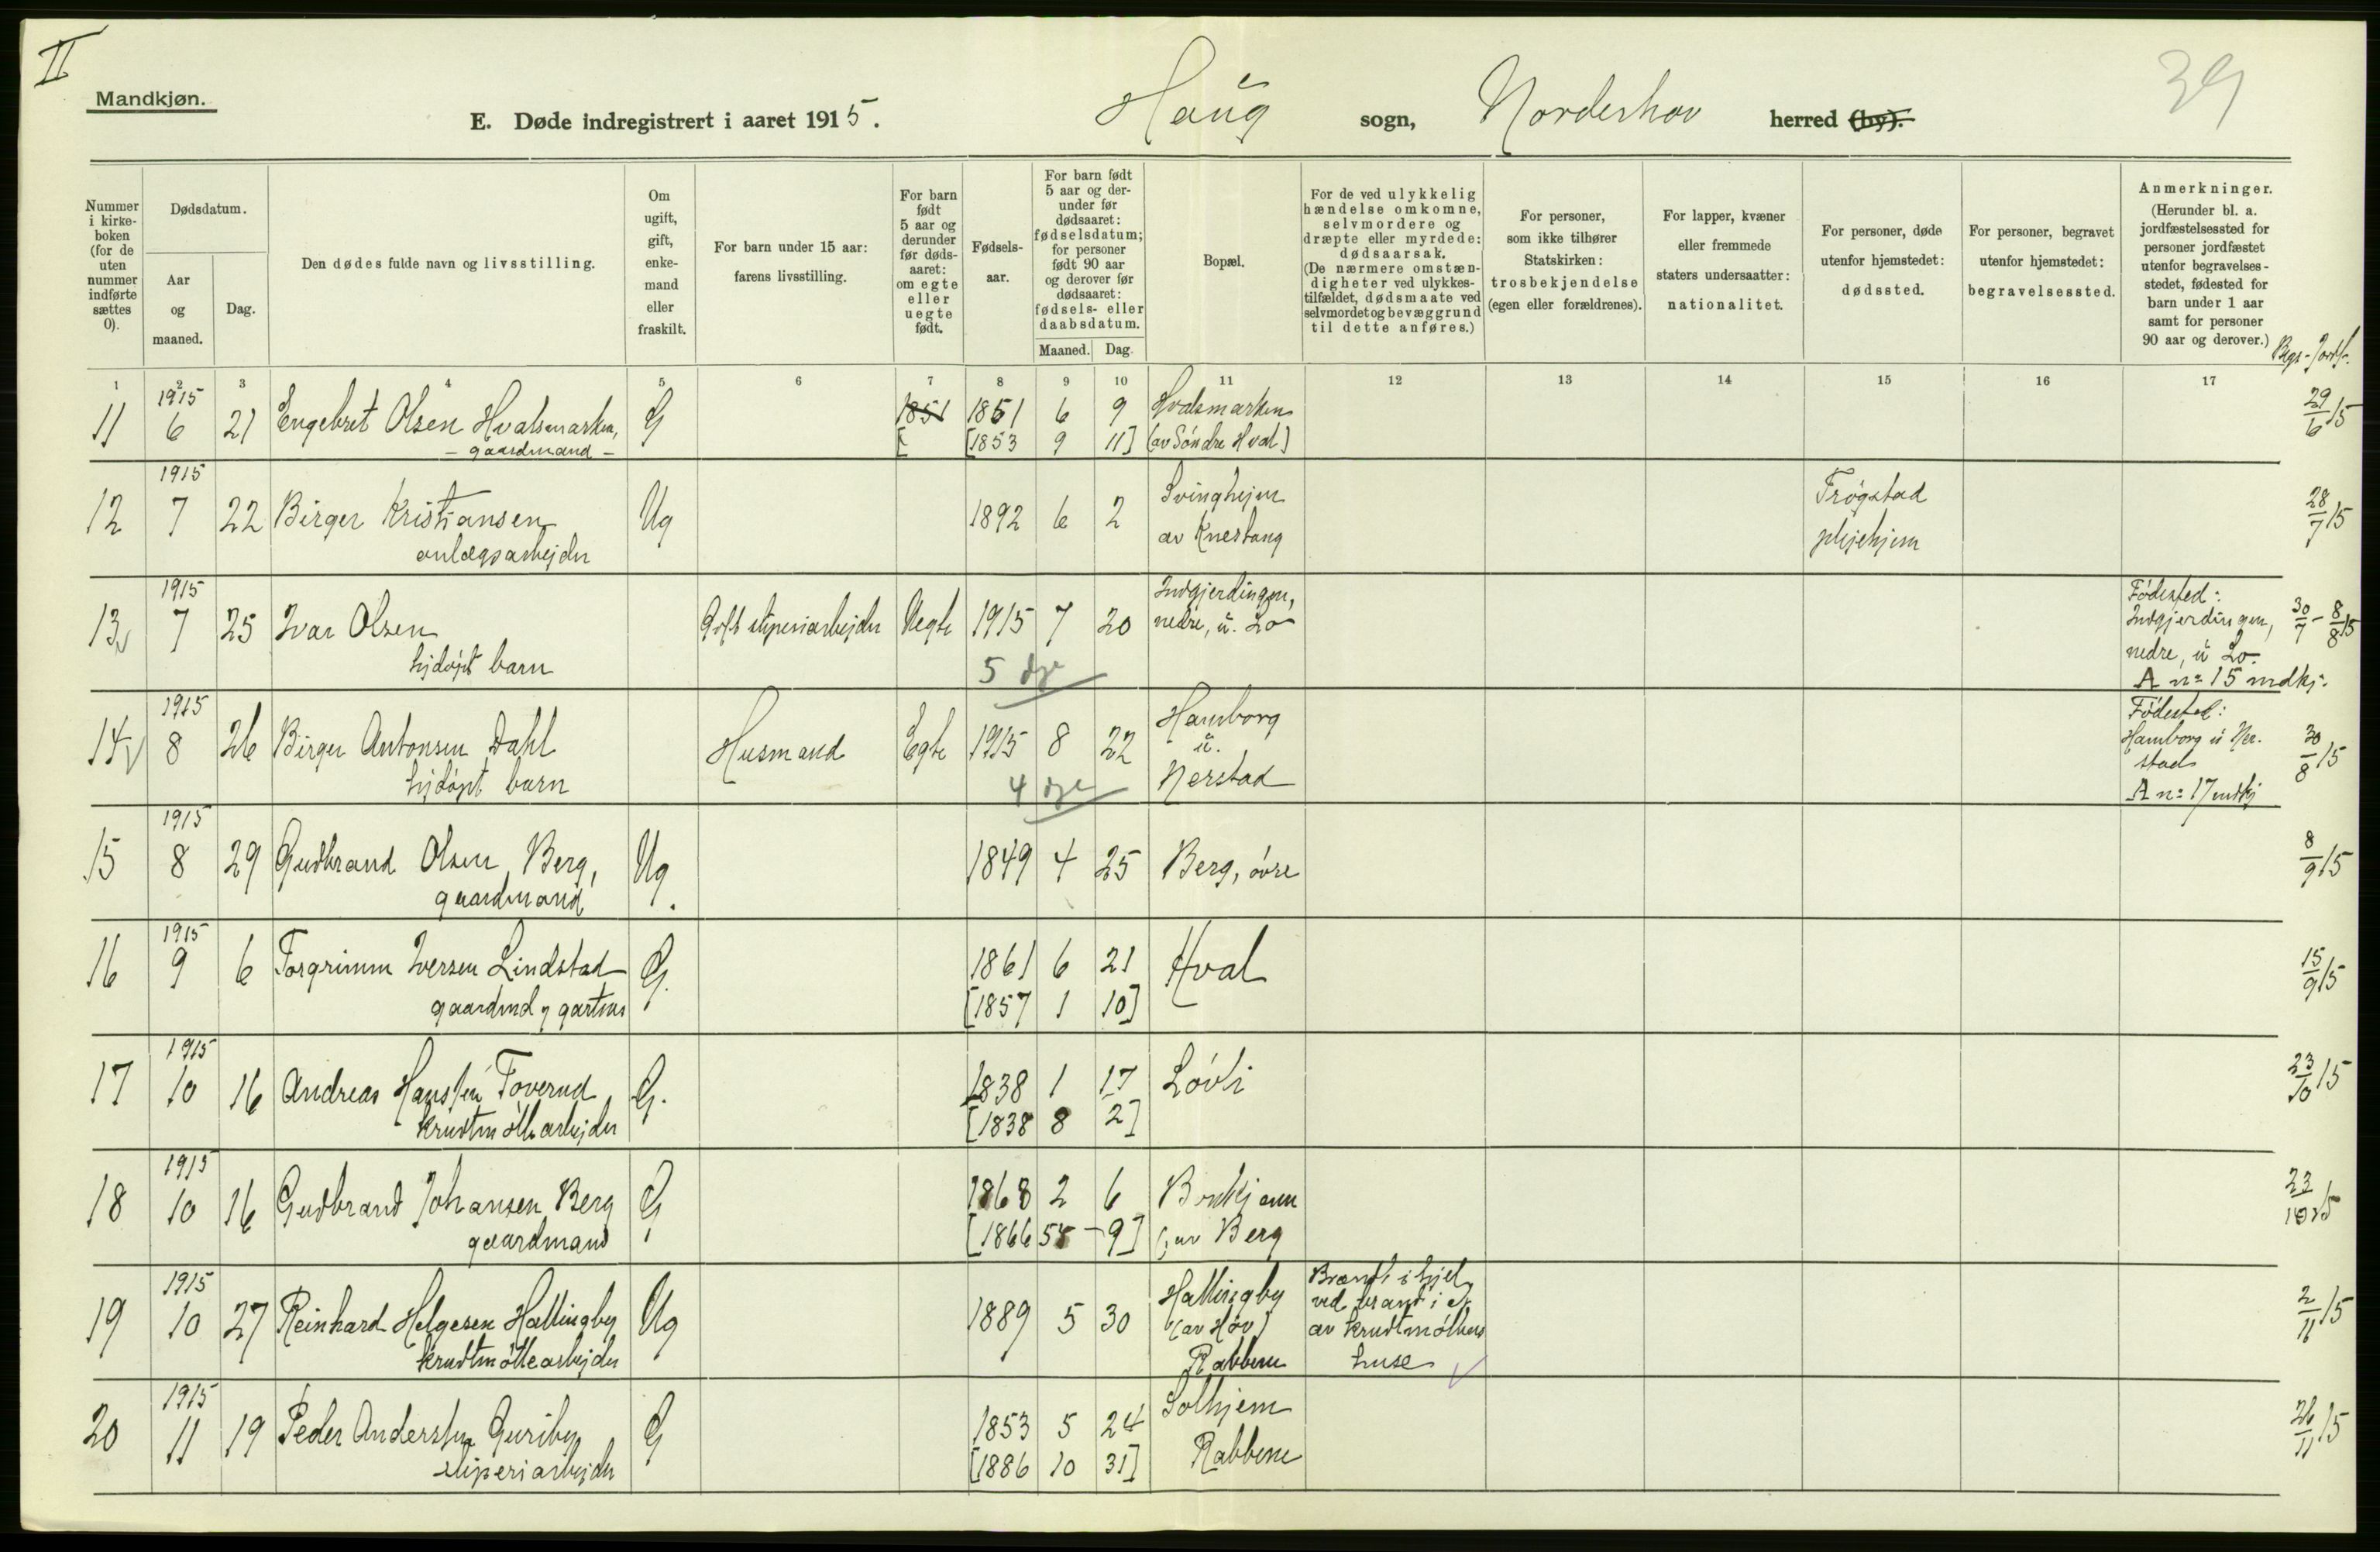 II
Mandkjøn.
E. Døde indregistrert i aaret 1915.
Haug sogn, Norderhov herred (by).
39
Nummer i kirke-boken (for de uten nummer indførte sættes 0).
Dødsdatum.
Aar og maaned.
Dag.
Den dødes fulde navn og livsstilling.
Om ugift, gift, enke-mand eller fraskilt.
For barn under 15 aar: farens livsstilling.
For barn født 5 aar og derunder før døds-aaret: om egte eller uegte født.
Fødsels-aar.
For barn født 5 aar og der-under før dødsaaret: fødselsdatum; for personer født 90 aar og derover før dødsaaret: fødsels- eller daabsdatum.
Maaned.
Dag.
Bopæl.
For de ved ulykkelig hændelse omkomne, selvmordere og dræpte eller myrdede: dødsaarsak. (De nærmere omstæn-digheter ved ulykkes-tilfældet, dødsmaate ved selvmordet og bevæggrund til dette anføres.)
For personer, som ikke tilhører Statskirken: trosbekjendelse (egen eller forældrenes).
For lapper, kvæner eller fremmede staters undersaatter: nationalitet.
For personer, døde utenfor hjemstedet: dødssted.
For personer, begravet utenfor hjemstedet: begravelsessted.
Anmerkninger. (Herunder bl. a. jordfæstelsessted for personer jordfæstet utenfor begravelses-stedet, fødested for barn under 1 aar samt for personer 90 aar og derover.)
Begr-Jordf.
1 2 3 4 5 6 7 8 9 10 11 12 13 14 15 16 17
1915
11 6 21 Engebret Olsen Hvalsmarken, G 1851 1851 6 9 Hvalsmarken 29/6 15
- gaardmand - [ [1853 9 11] (av Söndre Hval)
1915
12 7 22 Birger Kristiansen Ug 1892 6 2 Svinghejm Trögstad 28/7 15
anlægsarbejder av Knestang plejehjem
1915
13 7 25 Ivar Olsen Gift sliperiarbejder Uegte 1915 7 20 Indgjerdingen, nedre, u. Lo Födested: Indgjerdingen, 30/7 - 8/8 15
hjdöpt barn 5 dge nedre, u Lo.
A nº 15 mdkj.
1915
14 8 26 Birger Antonsen Dahl Husmand Egte 1915 8 22 Hamborg u. Nerstad Födested: Hamborg u Ner-stad 30/8 15
hjdöpt barn 4 dge A nº 17 mdkj
1915
15 8 29 Gudbrand Olsen Berg, Ug. 1849 4 25 Berg, övre 8/9 15
gaardmand
1915
16 9 6 Torgrimm Iversen Lindstad G. 1861 6 21 Hval 15/9 15
gaardmd og gartner [1857 1 10]
1915
17 10 16 Andreas Hanssen Toverud G. 1838 1 17 Lövli 23/10 15
krudtmöllearbejder [1838 8 2]
1915
18 10 16 Gudbrand Johansen Berg G 1868 2 6 23/10 15
gaardmand [1866 5 - 9] (av Berg
1915
19 10 27 Reinhard Helgesen Hallingby Ug 1889 5 30 Hallingby Brændt ihjel 2/11 15
krudtmöllearbejder (av Höv) ved brand i et
Rabbene av krudtmöllens
huse
1915
20 11 19 Peder Anderssen Guriby G 1853 5 24 Solhjem 26/11 15
sliperiarbejder [1886 10 31] Rabbene